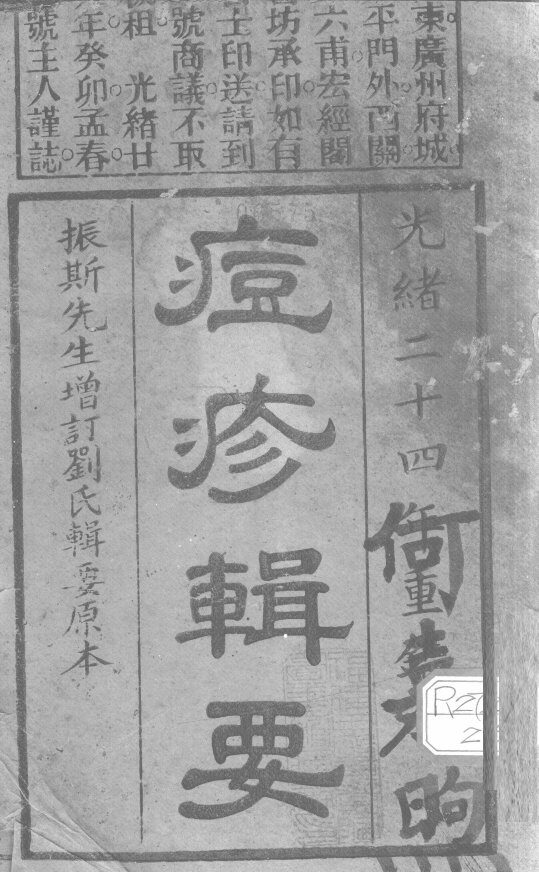 東廣州府城
平門外西關
六甫宏經閣
坊承印如有
士印送請到
號商議不取
板租 光緒廿
年癸卯孟春
號主人謹誌
光緒二十四
重
痘疹輯要
振斯先生增訂劉氏輯要原本